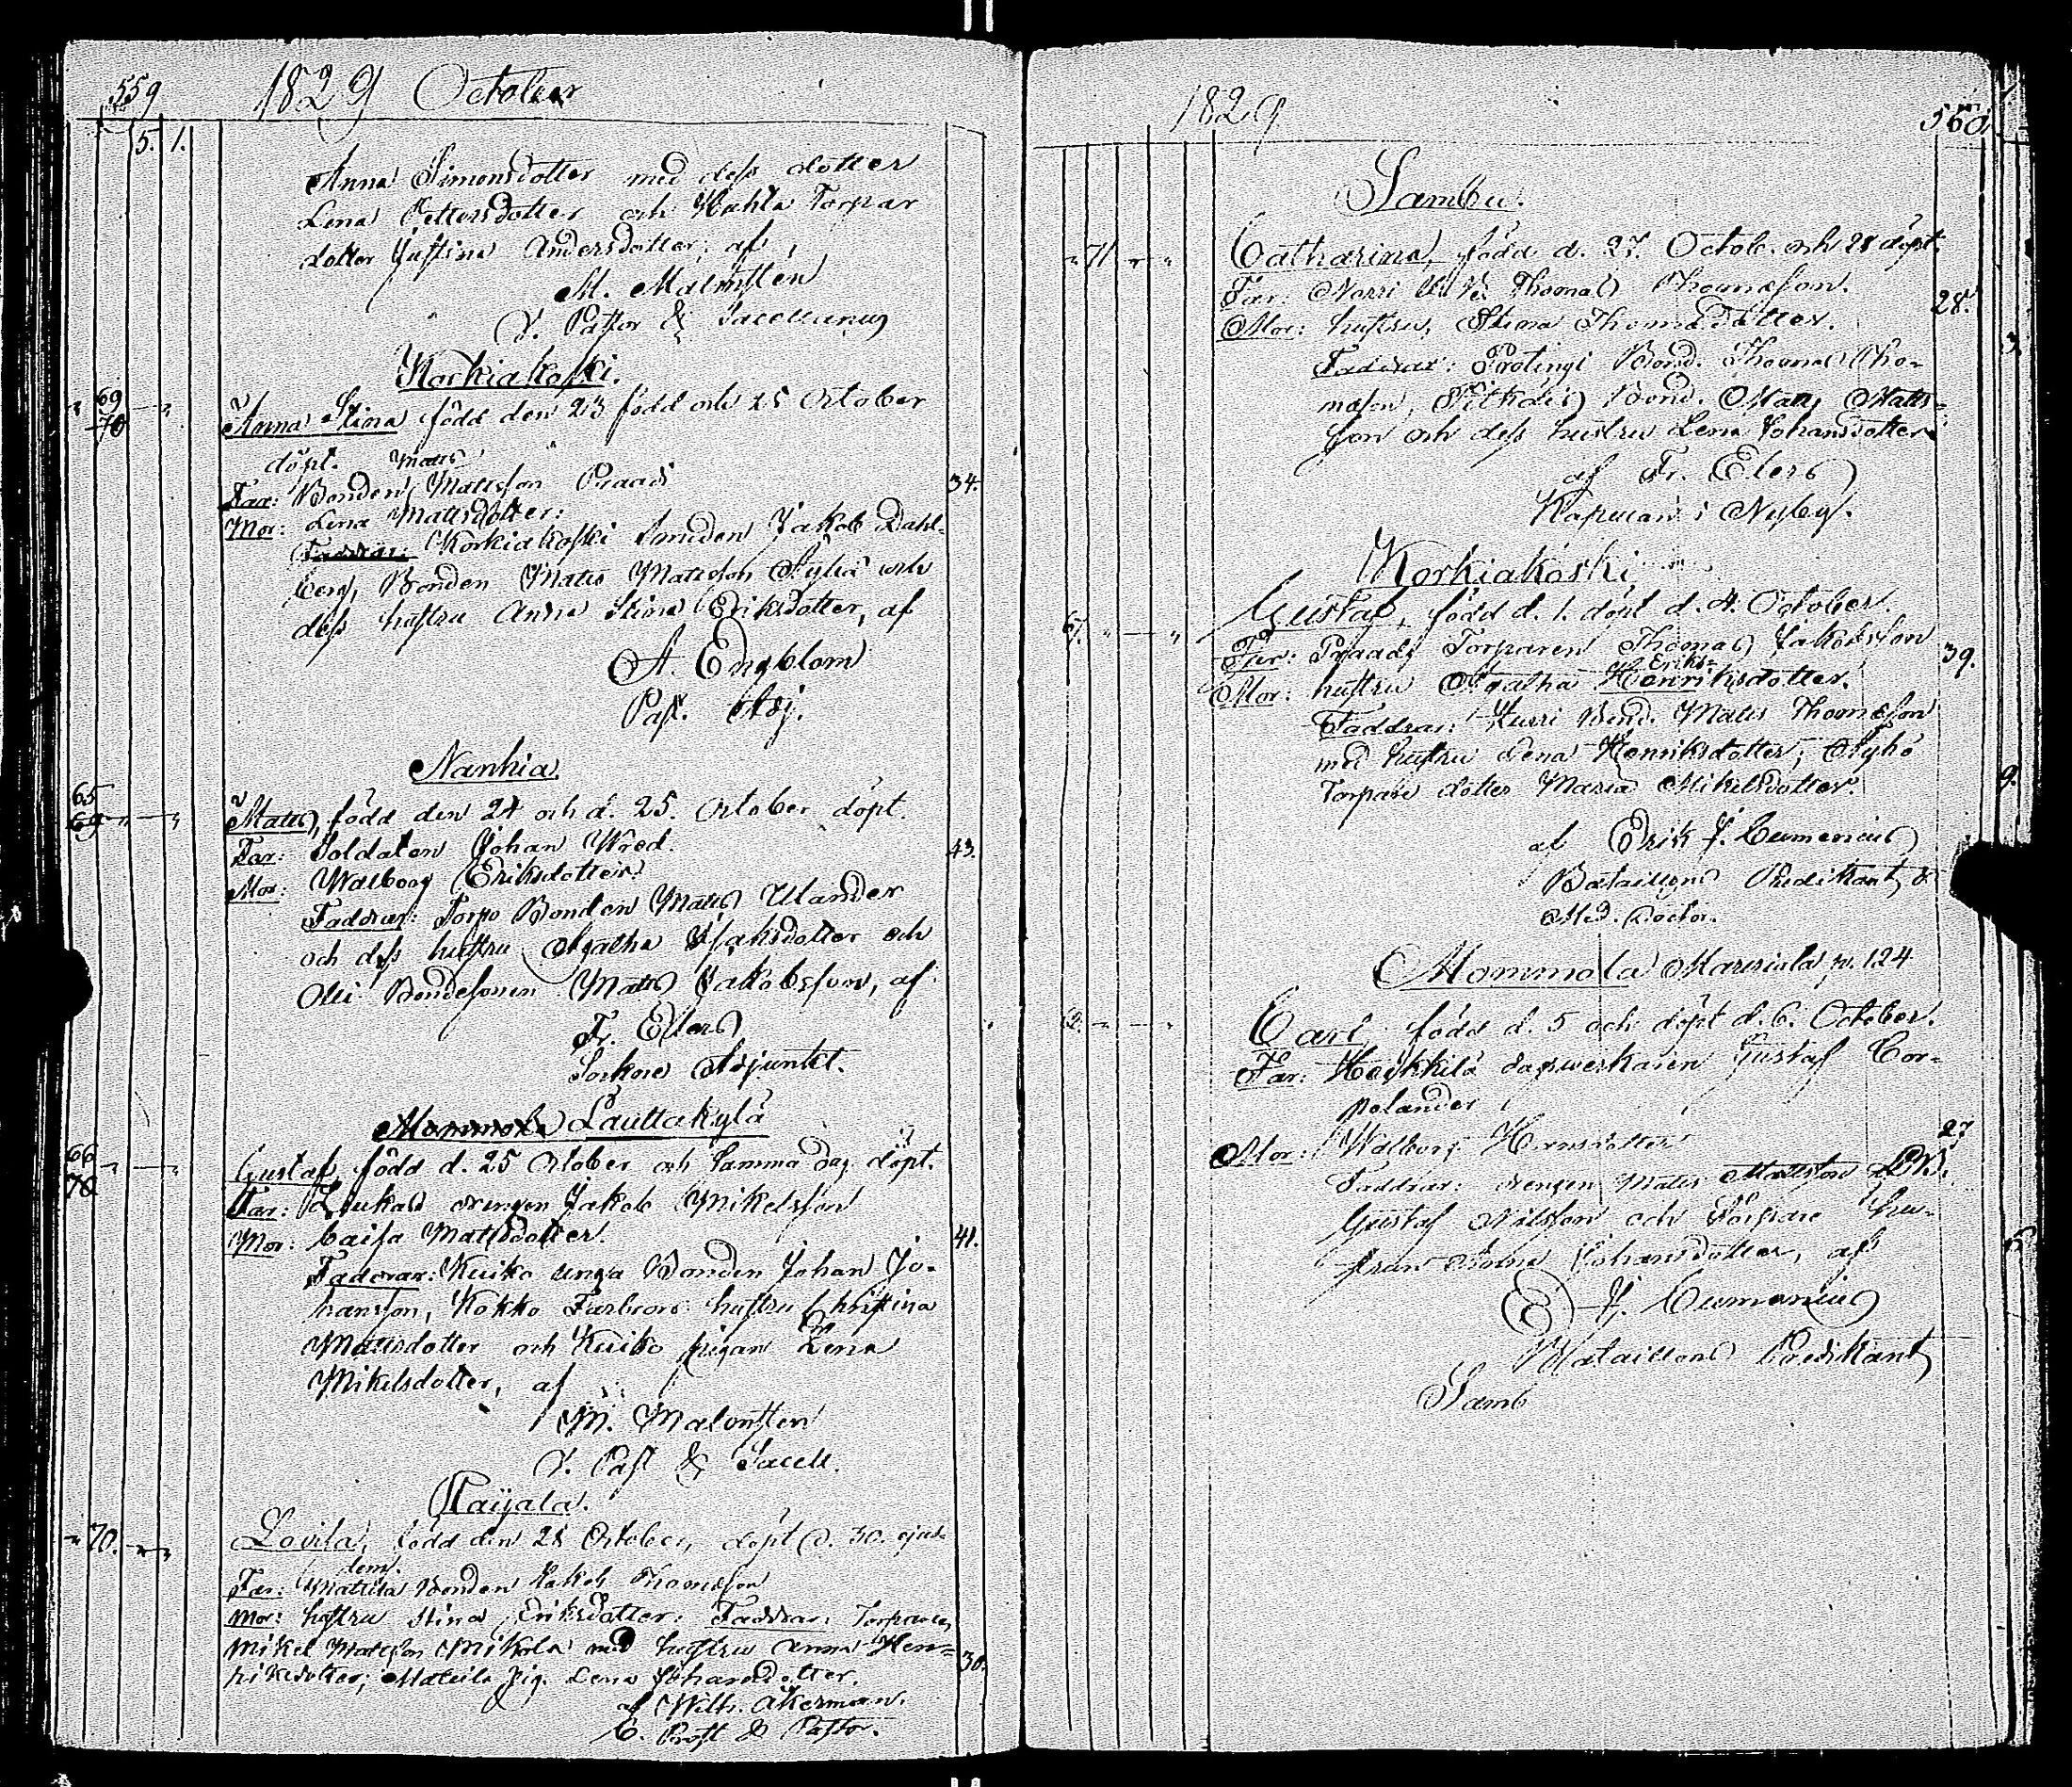 559
1829 October
5. 1.
Anna Simonsdotter med dess dotter
Lena Pettersdotter och Torpar
dotter Justina Andersdotter, af
M. Malmstén
V. Pastor & Sacellanus
Korkiakoski.
69
70
Anna Stina född den 23 född och 25 October
döpt. Matts
Far: Bonden Mattsson Praadi
34.
Mor: Lena Mattsdotter:
Faddrar: Korkiakoski Smeden Jakob Dahl-
berg, Bonden Matts Mattsson och
dess hustru Anna Stina Eriksdotter, af
A. Engblom
Past. Adj.
Nanhia.
65
69
Matts, född den 24 och d. 25. October döpt.
Far: Soldaten Johan Wred.
43.
Mor: Walborg Eriksdotter.
Faddrar: Torpo Bonden Matts Ulander
och dess hustru Agatha Isaksdotter och
Olli Bondesonen Matts Jakobsson, af
Fr. Elers
Sockne Adjunkt.
Mommola Lauttakylä
66
70
Gustaf, född d. 25 October och samma dag döpt.
Far: drengen Jakob Mikelsson
Mor: Caisa Mattsdotter.
41.
Faddrar: Kuiko unga Bonden Johan Jo-
hansson, Kokko hustru Christina
Mattsdotter och Kuiko pigan Lena
Mikelsdotter, af
M. Malmsten
V. Past & Sacell.
Raijala.
70.
Lovisa, född den 28 October, döpt d. 30. ejus-
dem.
Far: Mattila Bonden Jakob Thomasson
Mor: hustru Stina Eriksdotter: Faddrar: Torparen
Mikel Mattsson Mikola med hustru Anna Hen-
30.
riksdotter; Mattila Pig. Lena Johansdotter.
af Wilh. Åkerman.
C. Prost & Pastor.
1829
560
Sambu.
71
Catharina, född d. 27. Octob. och 28 döpt.
Far: Norri Thomas Thomasson.
28.
Mor: hustru, Stina Thomasdotter.
3.
Faddrar: Bond. Thomas Tho-
masson, Bond. Matts Matts-
son och dess hustru Lena Johansdotter
af Fr. Elers
Kapucan i Nyby.
Korkiakoski
67.
Gustaf, född d. 1. döpt d. 4. October.
Far: Praadi Torparen Thomas Jakobsson
39.
Eriks-
Mor: hustru Agatha Henriksdotter.
Faddrar: Kurri Bond. Matts Thomasson
med hustru Lena Henriksdotter,
Torpare dotter Maria Mikelsdotter.
9.
af Erik J. Cumenius
Bataillons Predikant &
Med. Doctor.
Mommola Mauriala p. 124
62.
Carl, född d. 5 och döpt d. 6. October.
Far: Heikkilä dagsverkaren Gustaf Cor-
pelander
27
Mor: Walborg
Faddrar: drengen Matts Mattsson
Gustaf Nilsson och Torpare hu-
strun Johansdotter, af
6
E. J. Cumenius
Bataillons Predikant
Samb